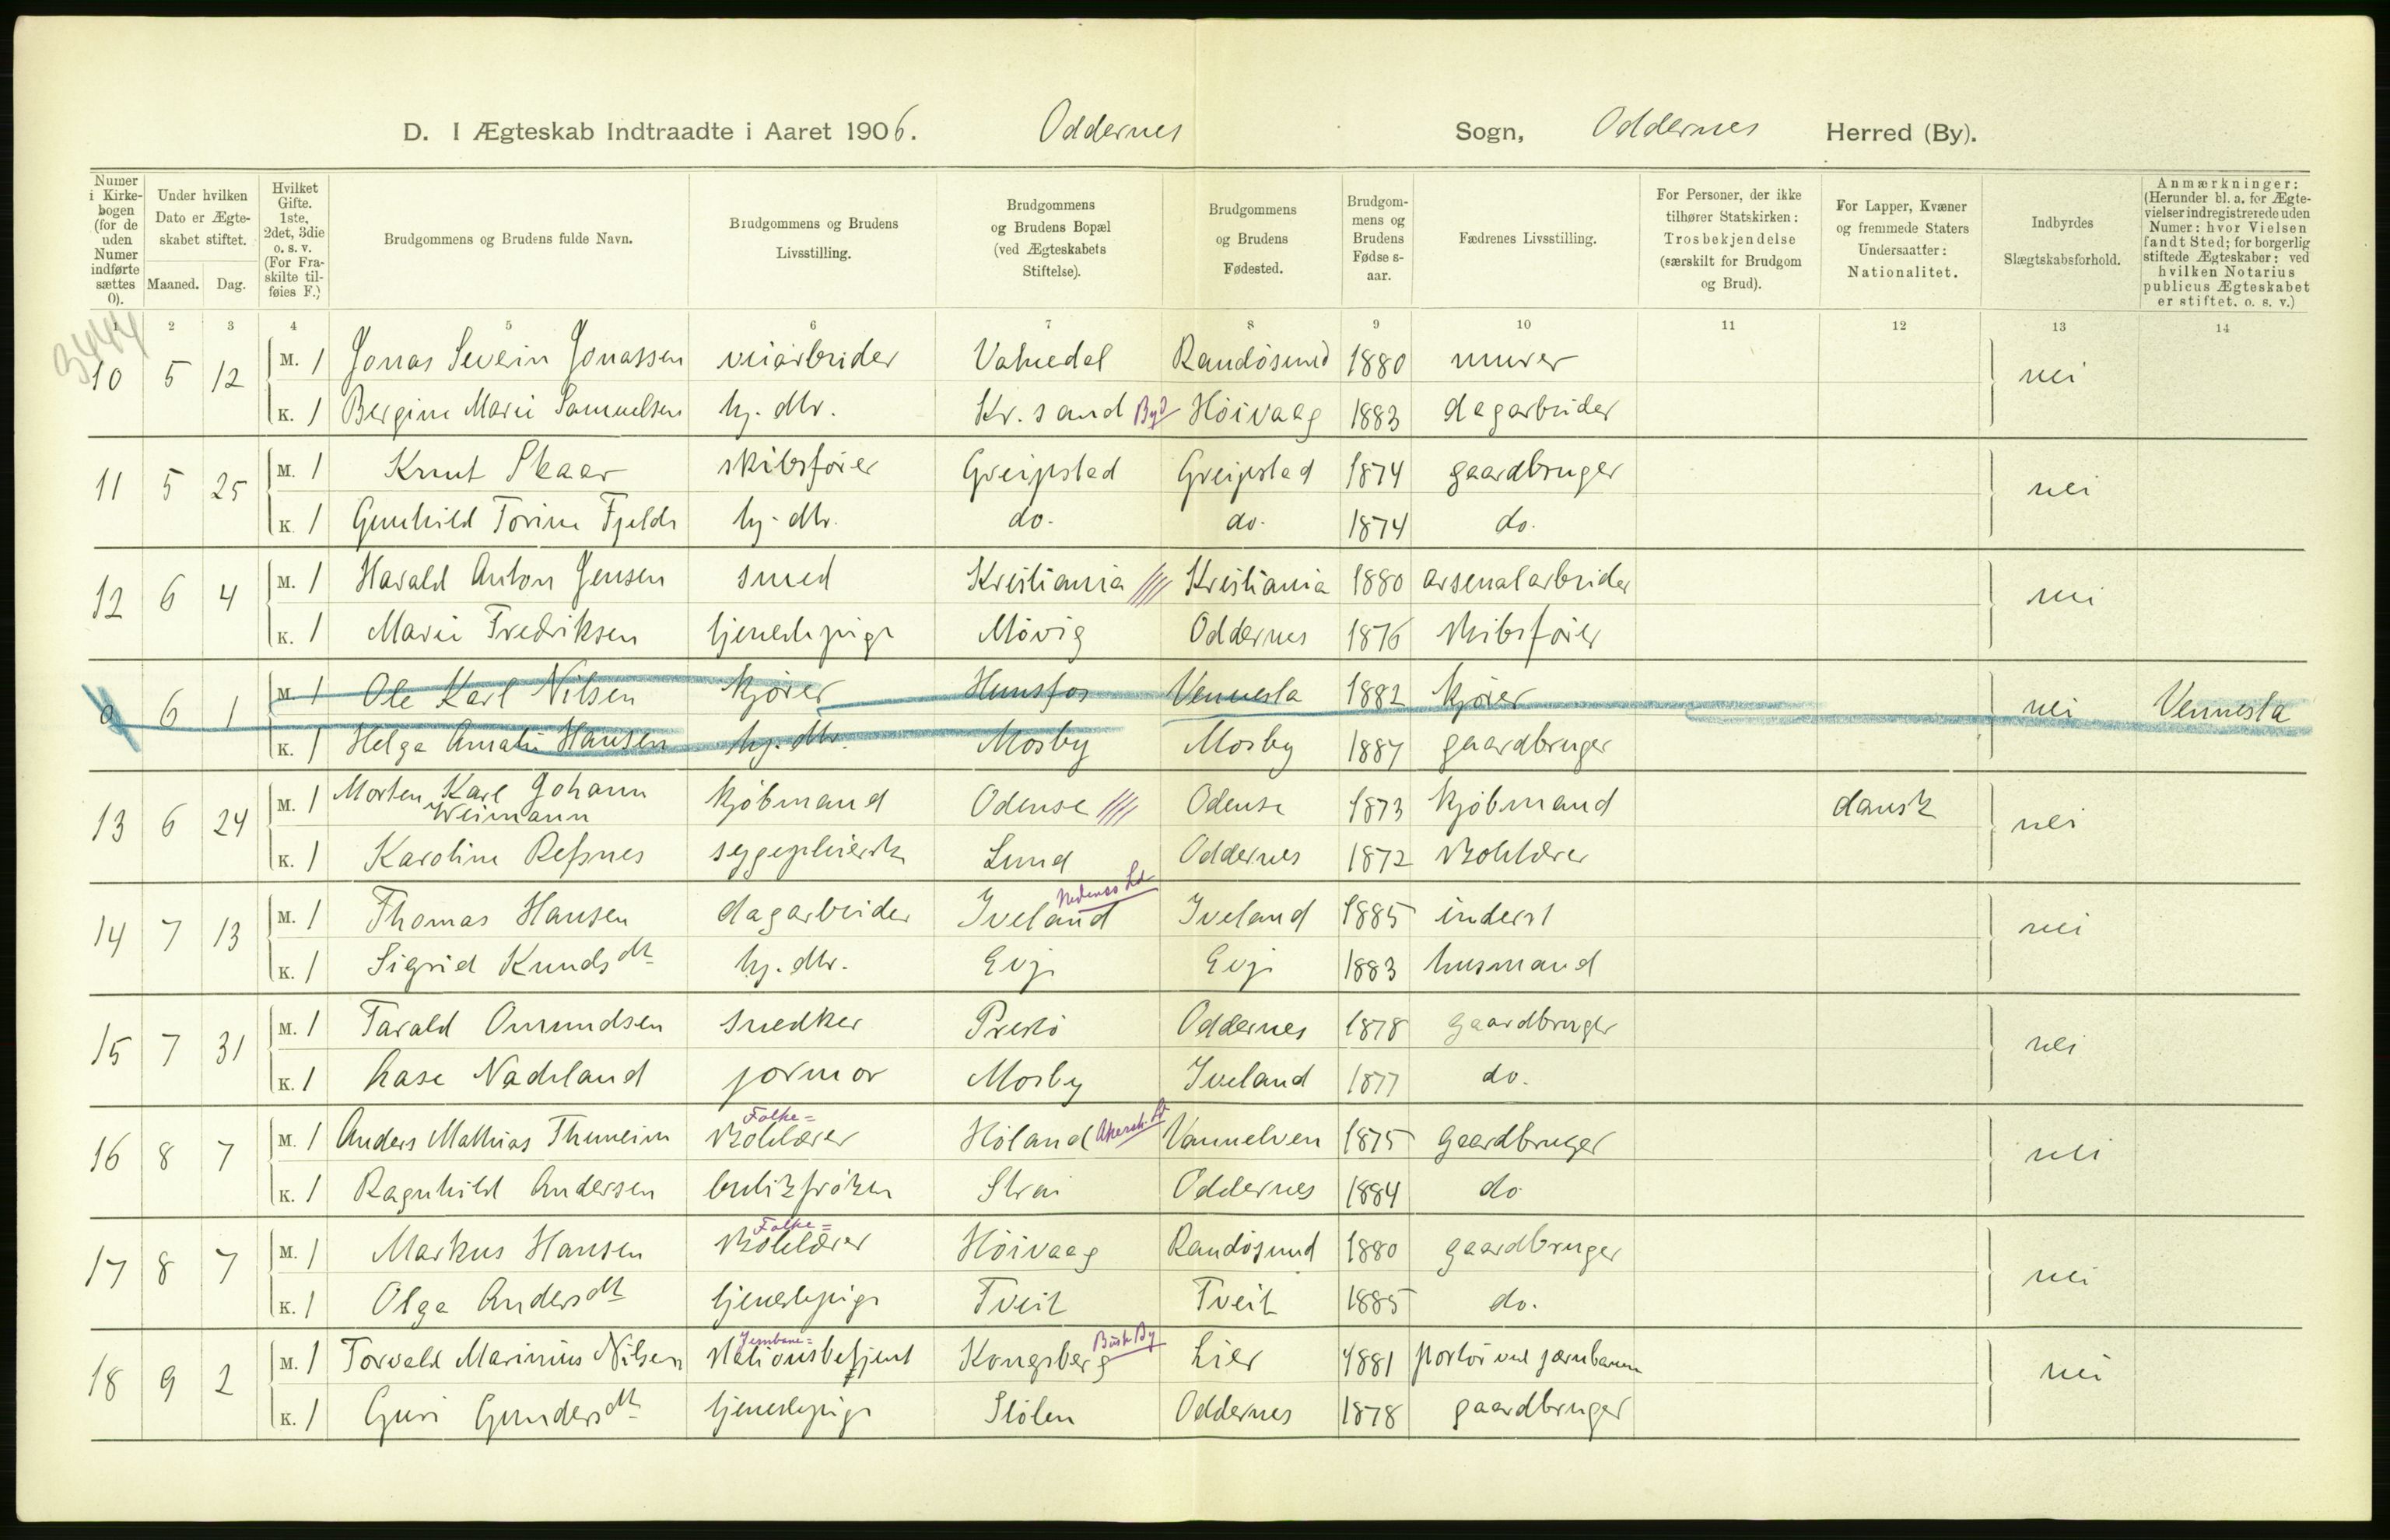 D. I Ægteskab Indtraadte i Aaret 1906. Oddernes Sogn, Oddernes Herred (By).
Numer i Kirkebogen (for de uden Numer indførte sættes 0). Under hvilken Dato er Ægteskabet stiftet. Maaned. Dag. Hvilket Gifte. 1ste, 2det, 3die o. s. v. (For Fraskilte tilføies F.) Brudgommens og Brudens fulde Navn. Brudgommens og Brudens Livsstilling. Brudgommens og Brudens Bopæl (ved Ægteskabets Stiftelse). Brudgommens og Brudens Fødested. Brudgommens og Brudens Fødses-aar. Fædrenes Livsstilling. For Personer, der ikke tilhører Statskirken: Trosbekjendelse (særskilt for Brudgom og Brud). For Lapper, Kvæner og fremmede Staters Undersaatter: Nationalitet. Indbyrdes Slægtskabsforhold. Anmærkninger: (Herunder bl. a. for Ægtevielser indregistrerede uden Numer: hvor Vielsen fandt Sted; for borgerlig stiftede Ægteskaber: ved hvilken Notarius publicus Ægteskabet er stiftet. o. s. v.)
1 2 3 4 5 6 7 8 9 10 11 12 13 14
3444
10 5 12 M. 1 Jonas Severin Jonassen veiarbeider Valuedal Randösund 1880 murer nei
K. 1 Bergine Marie Samuelsen hj. dtr. Kr.sand Byd Höivaag 1883 dagarbeider
11 5 25 M. 1 Knut Skaar skibsförer Greipstad Greipstad 1874 gaardbruger nei
K. 1 Gunhild Torine Fjelde hj. dtr. do. do. 1874 do.
12 6 4 M. 1 Harald Anton Jensen smed Kristiania Kristiania 1880 arsenalarbeider nei
K. 1 Marie Fredriksen tjenestepige Mövig Oddernes 1876 skibsförer
0 6 1 M. 1 Ole Karl Nilsen kjörer Hunsfos Vennesla 1882 kjörer nei Vennesla
K. 1 Helga Amalie Hansen hj. dtr. Mosby Mosby 1887 gaardbruger
13 6 24 M. 1 Morten Karl Johann Weimann kjöbmand Odense Odense 1873 kjöbmand dansk nei
K. 1 Karoline Refsnes sygepleierske Lund Oddernes 1872 skolelærer
14 7 13 M. 1 Thomas Hansen dagarbeider Iveland Nedenes Ld Iveland 1885 inderst nei
K. 1 Sigrid Knudsdtr hj. dtr. Evje Evje 1883 husmand
15 7 31 M. 1 Tarald Omundsen snedker Prestö Oddernes 1878 gaardbruger nei
K. 1 Aase Nadeland jormor Mosby Iveland 1877 do.
16 8 7 M. 1 Anders Mathias Thuneim Folke= skolelærer Höland Akersh. Ld Vannelven 1875 gaardbruger nei
K. 1 Ragnhild Andersen butikfröken Strai Oddernes 1884 do
17 8 7 M. 1 Markus Hansen Folke= skolelærer Höivaag Randösund 1880 gaardbruger nei
K. 1 Olga Andersdtr tjenestepige Tveit Tveit 1885 do.
18 9 2 M. 1 Torvald Marinius Nilsen Jernbane= stationsbetjent Kongsberg Busk By Lier 1881 portör ved jernbanen nei
K. 1 Guri Gundersdtr tjenestepige Stölen Oddernes 1878 gaardbruger